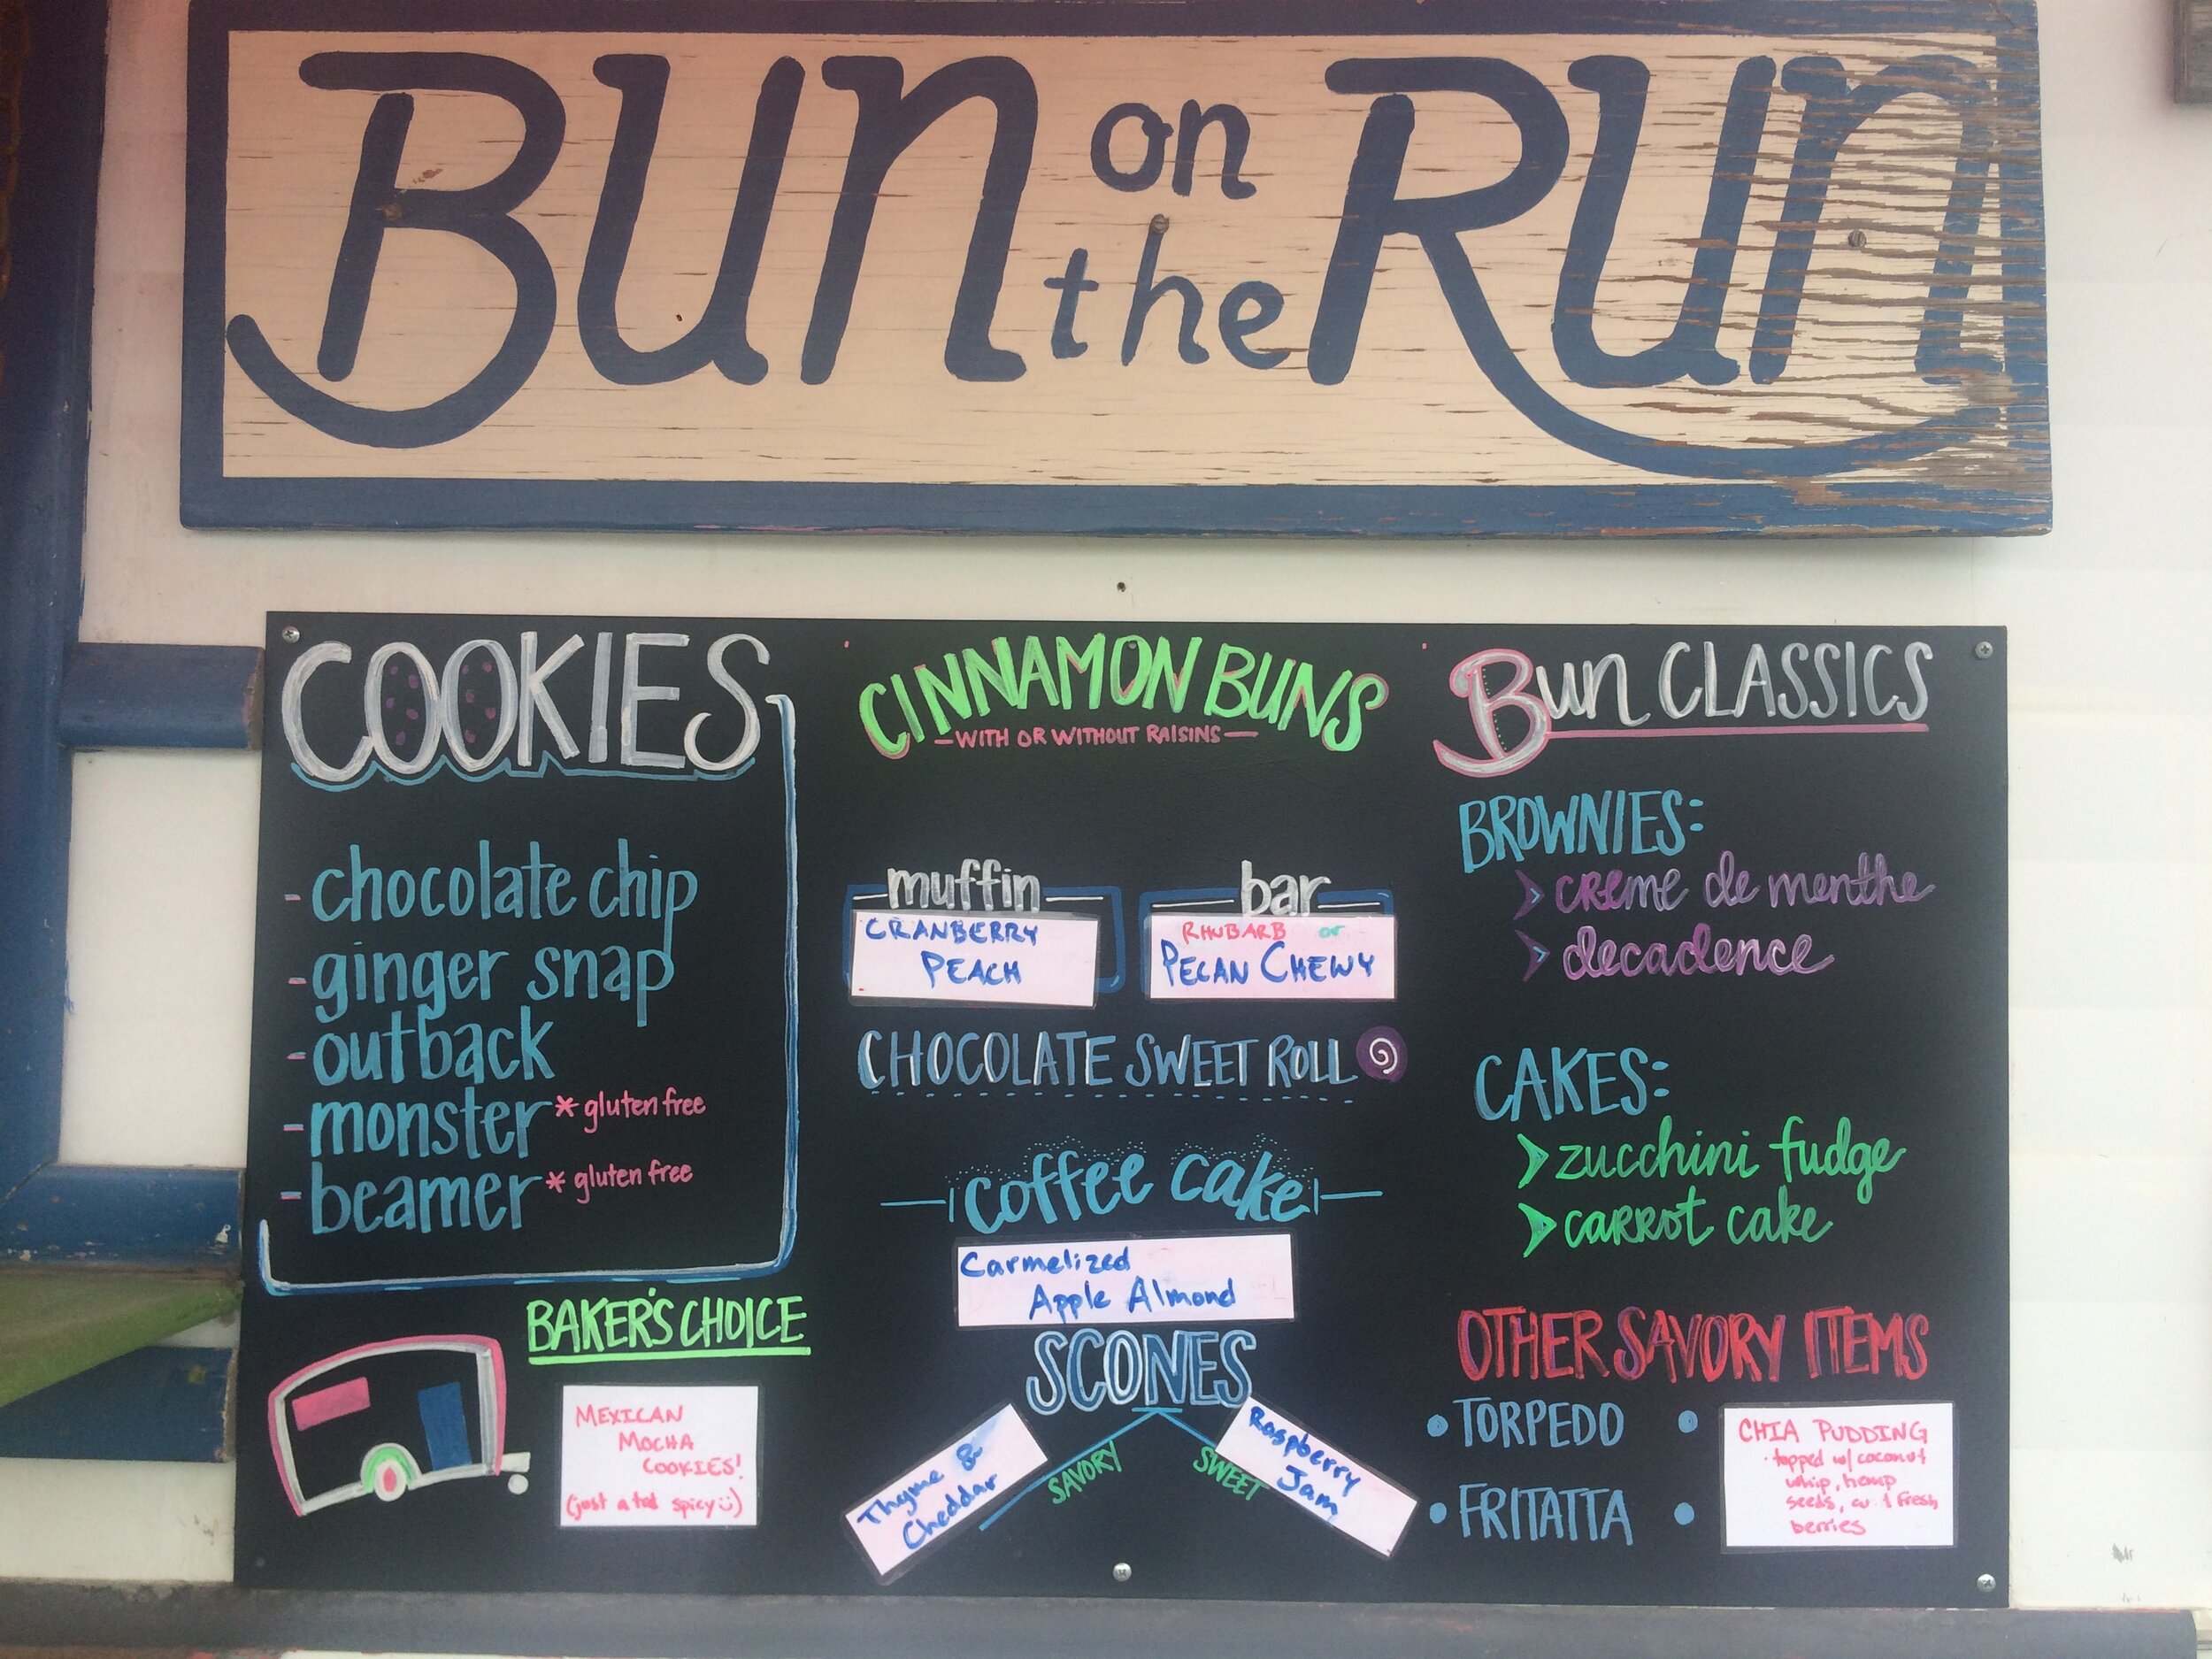 Bun on the Run
COOKIES
- chocolate chip
- ginger snap
- outback
- monster * gluten free
- beamer * gluten free
BAKER'S CHOICE
MEXICAN
MOCHA
COOKIES!
(just a tad spicy ü)
CINNAMON BUNS
— WITH OR WITHOUT RAISINS —
muffin
CRANBERRY
PEACH
bar
RHUBARB or
PECAN CHEWY
CHOCOLATE SWEET ROLL
coffee cake
Carmelized
Apple Almond
SCONES
SAVORY
Thyme &
Cheddar
SWEET
Raspberry
Jam
Bun CLASSICS
BROWNIES:
> creme de menthe
> decadence
CAKES:
> zucchini fudge
> carrot cake
OTHER SAVORY ITEMS
• TORPEDO
• FRITATTA
•
CHIA PUDDING
• topped w/ coconut
whip, hemp
seeds, fresh
berries
•